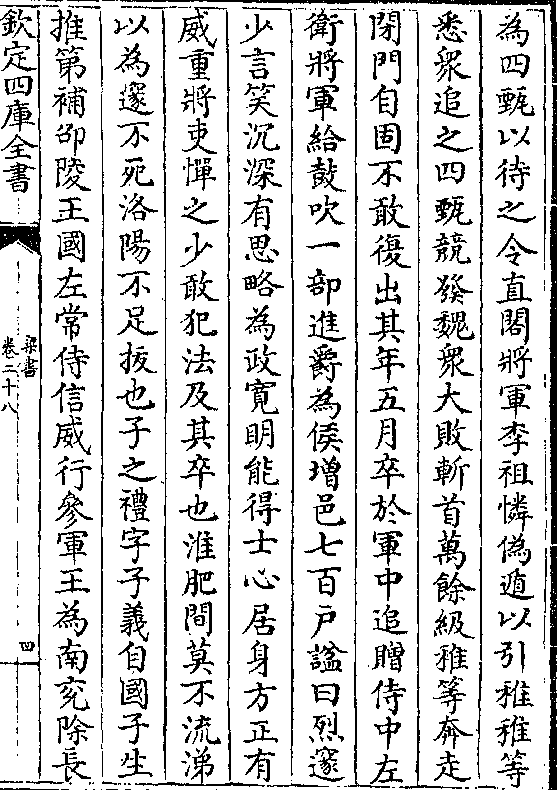 為四甄以待之令直閤將軍李祖憐偽遁以引稚稚等
悉衆追之四甄競發魏衆大敗斬首萬餘級稚等奔走
閉門自固不敢復出其年五月卒於軍中追贈侍中左
衛將軍給鼓吹一部進爵為侯增邑七百戸諡曰烈邃
少言笑沉深有思略為政寛明能得士心居身方正有
威重將吏憚之少敢犯法及其卒也淮肥間莫不流涕
以為邃不死洛陽不足拔也子之禮字子義自國子生
推第補邵陵王國左常侍信威行參軍王為南兖除長
欽定四庫全書
梁書
卷二十八
四